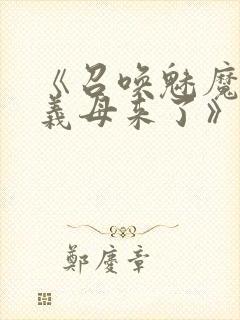 《召唤魅魔
義母来了》
鄭慶章